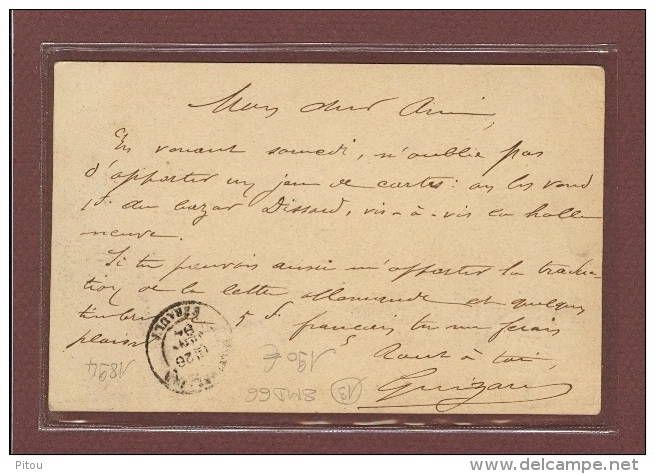 Mon cher Ami,
En venant samedi, n'oublie pas
d'apporter un jeu de cartes : on les vend
au bazar Dissard, vis-à-vis la halle
neuve.
Si tu pouvais aussi m'apporter la traduc-
tion de la lettre allemande et quelques
timbres 5 français tu me ferais
plaisir
Tout à toi,
Guizard
HERAULT
26
94
1894
190€
13
8MD66
Pitou
delcampe.net